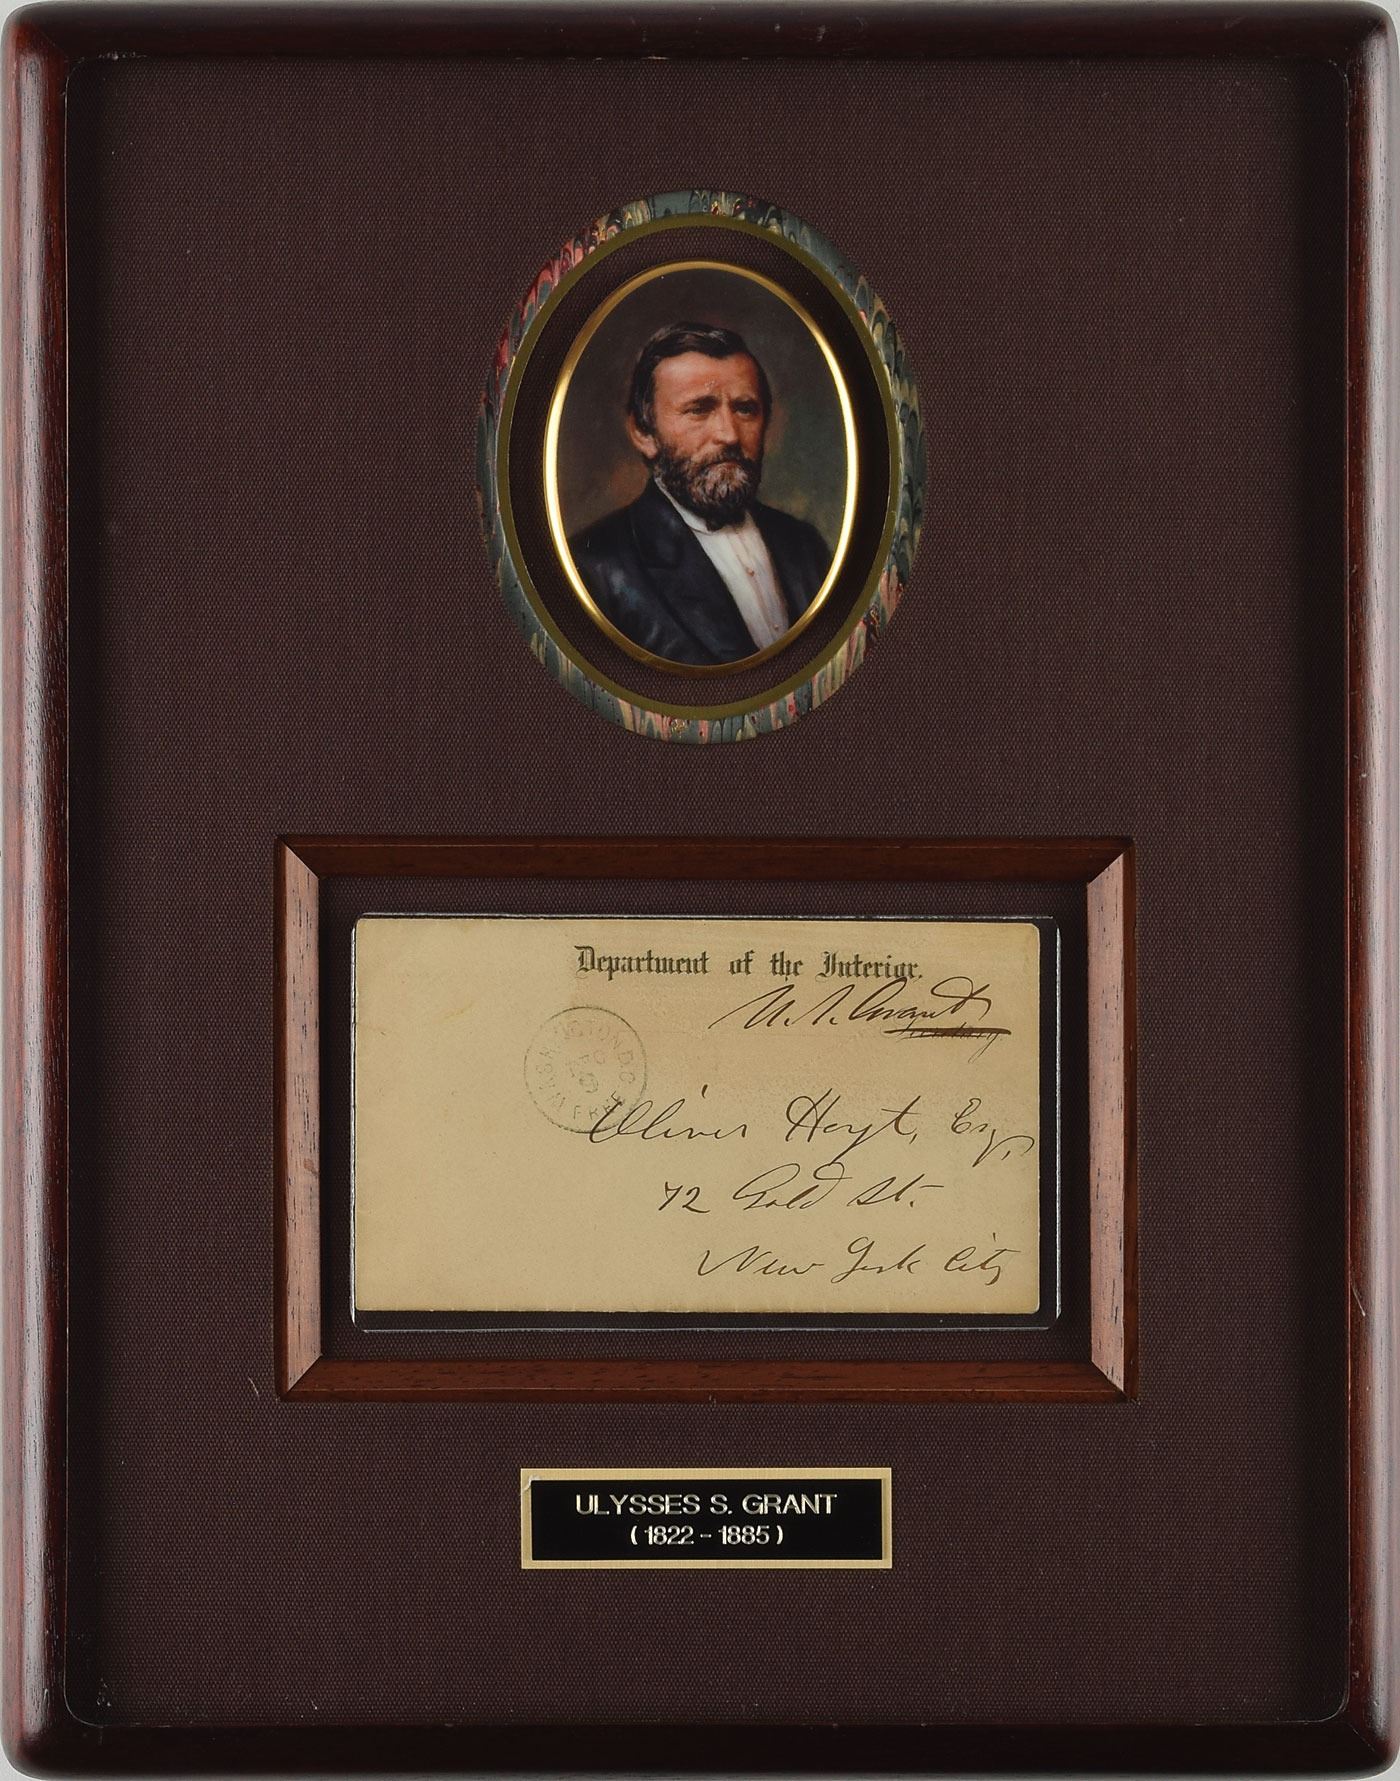 Department of the Interior.
U.S. Grant
Secretary
WASHINGTON D.C.
FREE
Oliver Hoyt, Esq,
72 Gold St.
New York City
ULYSSES S. GRANT
(1822 - 1885)